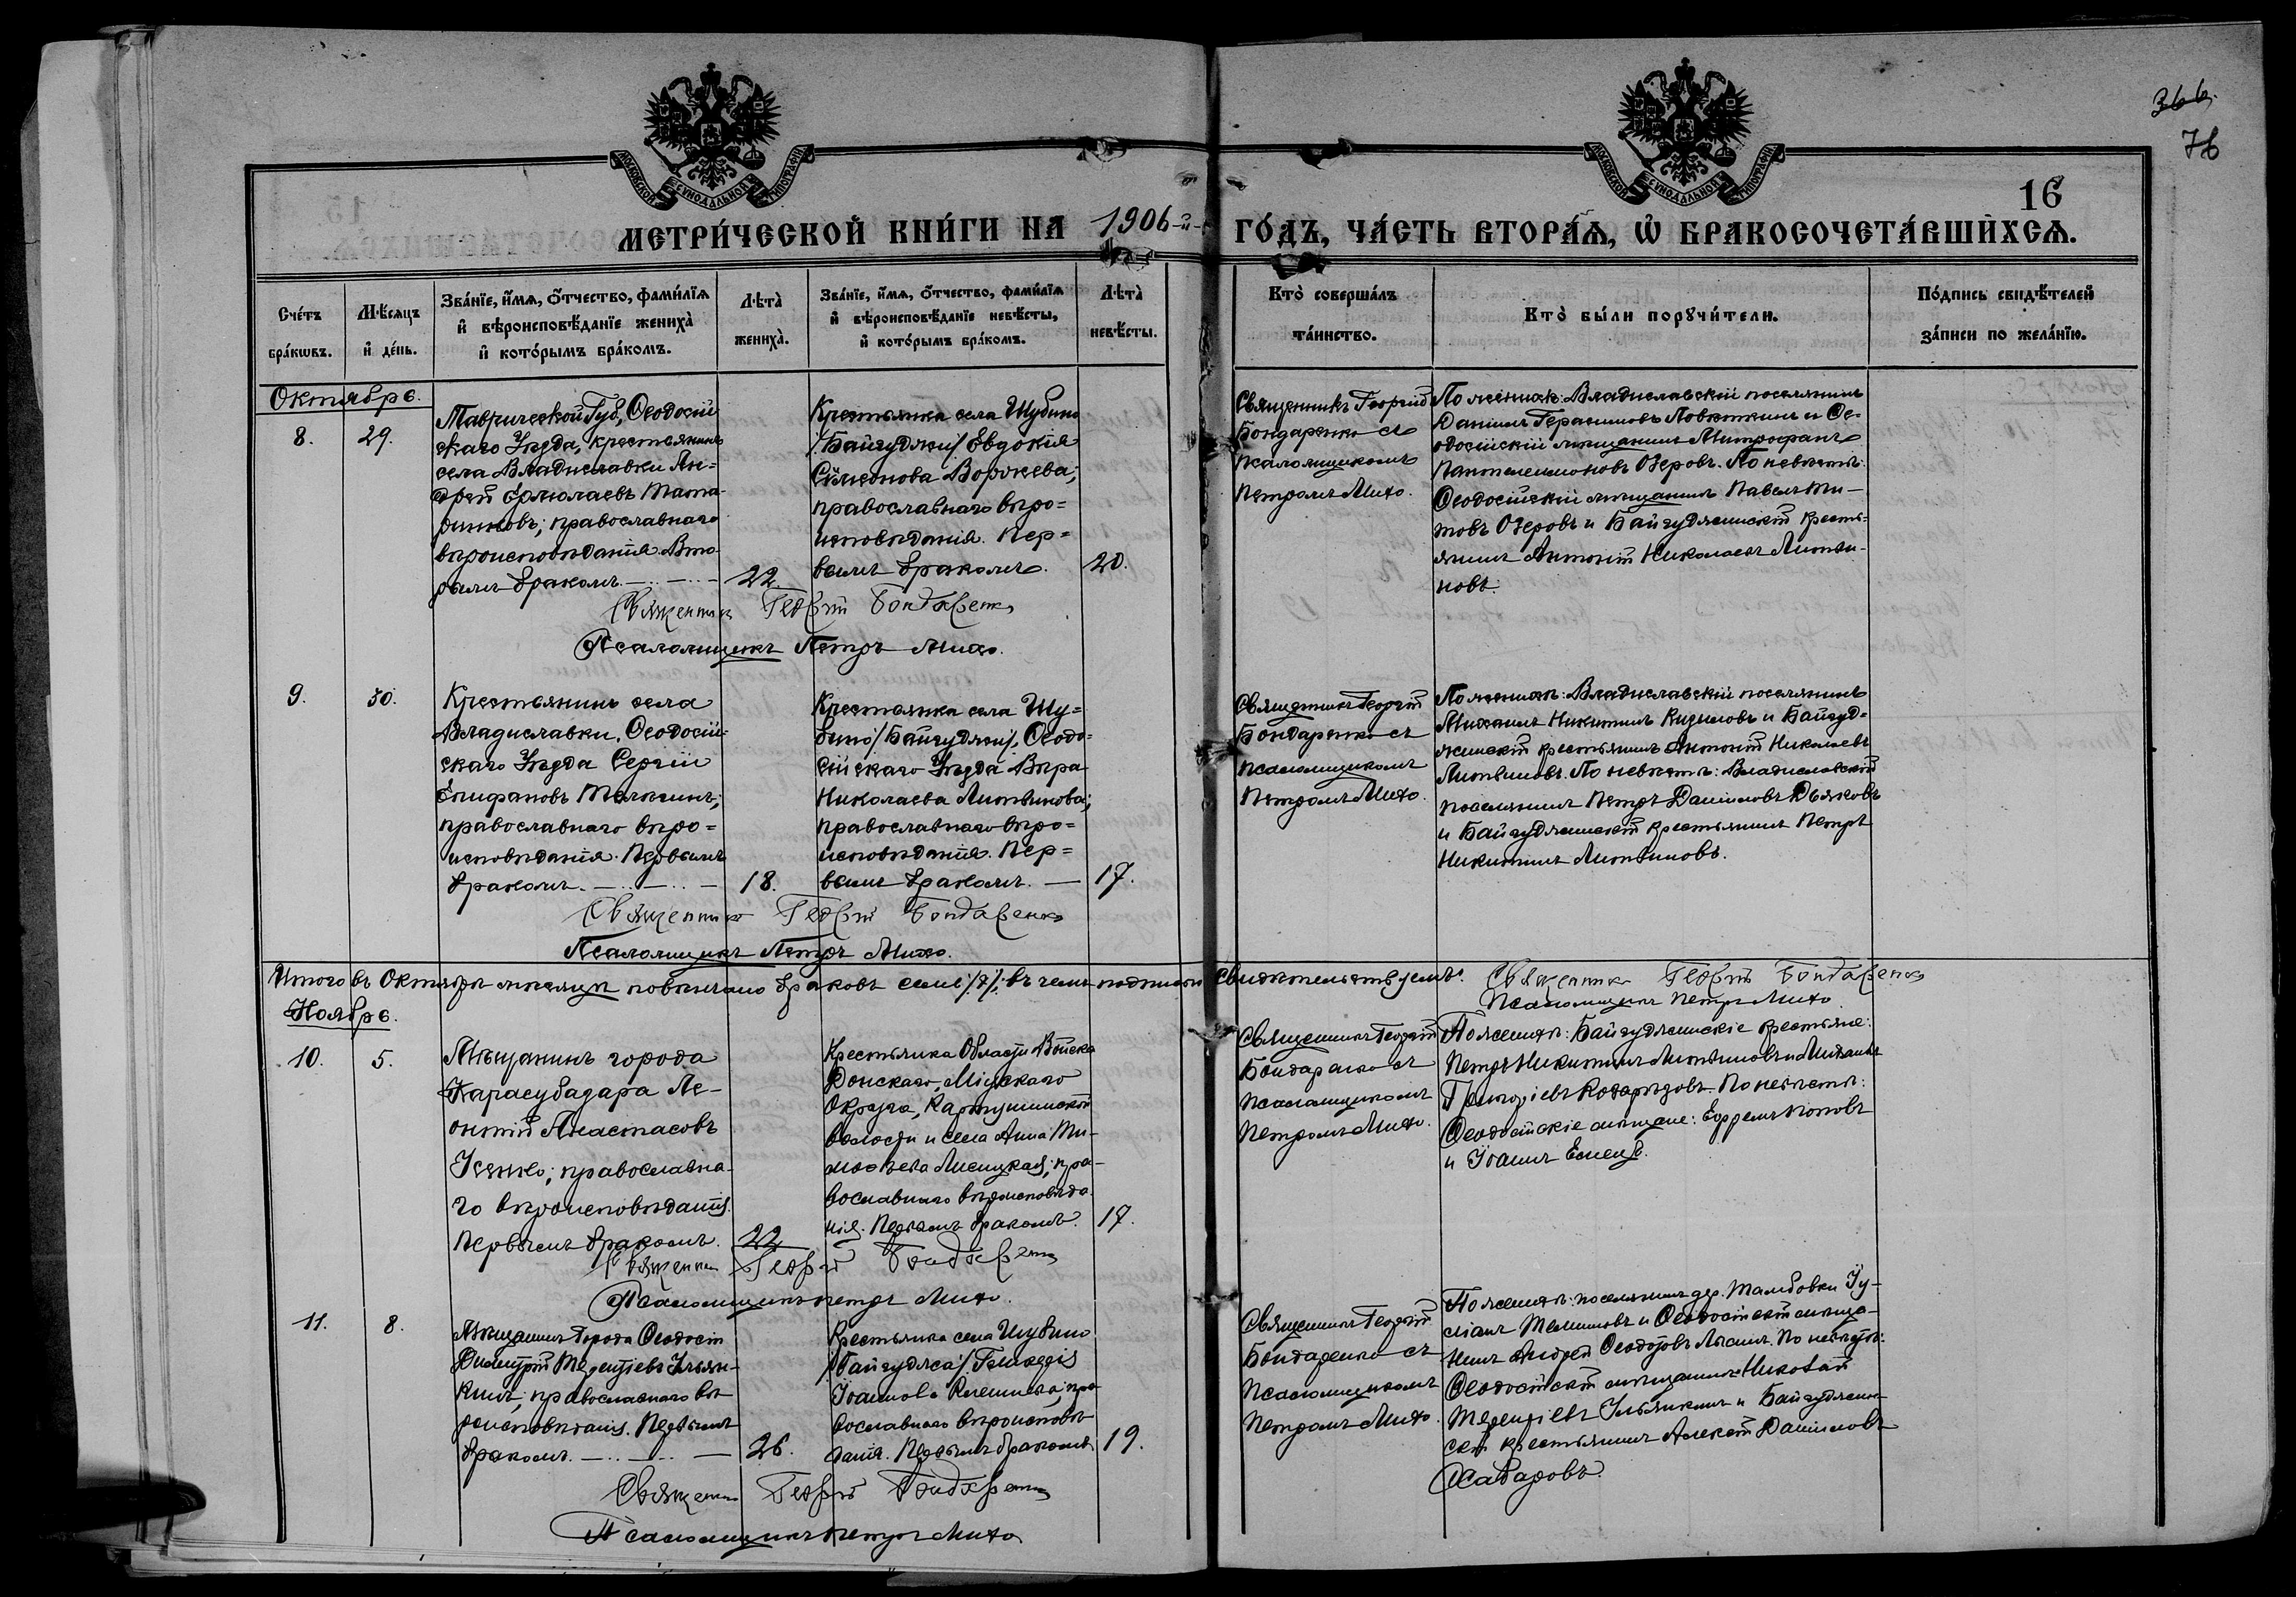 366.
76
16
МОСКОВСКОЙ СѴНОДАЛЬНОЙ ТИПОГРАФІИ
МОСКОВСКОЙ СѴНОДАЛЬНОЙ ТИПОГРАФІИ
МЕТРИ́ЧЕСКОЙ КНИ́ГИ НА 1906-й- ГО́ДЪ, ЧА́СТЬ ВТОРА́Ѧ, Ѡ҆ БРАКОСОЧЕТА́ВШИХСѦ.
Сче́тъ бра́кѡвъ.
Мѣ́сѧцъ и҆ де́нь.
Зва́нїе, и҆́мѧ, ѻ҆́тчество, фами́лїѧ
и҆ вѣроисповѣ́данїе жениха̀
и҆ кото́рымъ бра́комъ.
Лѣта̀ жениха̀.
Зва́нїе, и҆́мѧ, ѻ҆́тчество, фами́лїѧ
и҆ вѣроисповѣ́данїе невѣ́сты,
и҆ кото́рымъ бра́комъ.
Лѣта̀ невѣ́сты.
Кто̀ соверша́лъ
та́инство.
Кто̀ бы́ли порꙋчи́тели.
По́дпись свидѣ́телей
за́писи по жела́нїю.
Октябрь.
8.
29.
Таврической Губ, Ѳеодосій
скаго Уѣзда, крестьянинъ
села Владиславки Ан-
дрей Ермолаевъ
православнаго
вѣроисповѣданія. Вто-
рымъ бракомъ.
22.
Крестьянка села Шубино
/Байгуджи/ Евдокія
Сѵмеонова
православнаго вѣро-
исповѣданія. Пер-
вымъ бракомъ.
20.
Священникъ Георгій
Бондаренко съ
псаломщикомъ
Петромъ Михо.
По женихѣ: Владиславскій поселянинъ
Даніилъ Герасимовъ и Ѳе-
одосійскій мѣщанинъ Митрофанъ
Пантелеимоновъ Озеровъ. По невѣстѣ:
Ѳеодосійскій мѣщанинъ Павелъ Ти-
товъ Озеровъ и Байгуджинскій кресть-
янинъ Антоній Николаевъ Литви-
новъ.
Священникъ Георгій Бондаренко
Псаломщикъ Петръ Михо.
9.
30.
Крестьянинъ села
Владиславки, Ѳеодосій-
скаго Уѣзда Сергій
Епифановъ
православнаго вѣро-
исповѣданія. Первымъ
бракомъ.
18.
Крестьянка села Шу-
бино /Байгуджи/, Ѳеодо-
сійскаго Уѣзда Вѣра
Николаева Литвинова;
православнаго вѣро-
исповѣданія. Пер-
вымъ бракомъ.
17.
Священникъ Георгій
Бондаренко съ
псаломщикомъ
Петромъ Михо.
По женихѣ: Владиславскій поселянинъ
Михаилъ Никитинъ и Байгуд-
жинскій крестьянинъ Антоній Николаевъ
Литвиновъ. По невѣстѣ: Владиславскій
поселянинъ Петръ Даніиловъ Дьяковъ
и Байгуджинскій крестьянинъ Петръ
Никитинъ Литвиновъ.
Священникъ Георгій Бондаренко
Псаломщикъ Петръ Михо.
Итого въ Октябрѣ мѣсяцѣ повѣнчано браковъ семь /7/. въ чемъ подписомъ свидѣтельствуемъ. Священникъ Георгій Бондаренко
Псаломщикъ Петръ Михо.
Ноябрь.
10.
5.
Мѣщанинъ города
Карасубазара Ле-
онтій Анастасовъ
православна-
го вѣроисповѣданія.
Первымъ бракомъ.
22
Крестьянка Области Войска
Донскаго, Міусскаго
Округа,
волости и села Анна Ти-
моѳеева пра-
вославнаго вѣроисповѣда-
нія. Первымъ бракомъ.
17.
Священникъ Георгій
Бондаренко съ
псаломщикомъ
Петромъ Михо.
По женихѣ: Байгуджинскіе крестьяне:
Петръ Никитинъ Литвиновъ и Михаилъ
По невѣстѣ:
Ѳеодосійскіе мѣщане: Ефремъ Поповъ
и Іоаннъ
Священникъ Георгій Бондаренко
Псаломщикъ Петръ Михо.
11.
8.
Мѣщанинъ города Ѳеодосіи
Димитрій Терентіевъ Ульян-
кинъ; православнаго вѣ-
роисповѣданія. Первымъ
бракомъ.
26.
Крестьянка села Шубино
/Байгуджа/
Іоаннова пра-
вославнаго вѣроисповѣ-
данія. Первымъ бракомъ.
19.
Священникъ Георгій
Бондаренко съ
псаломщикомъ
Петромъ Михо.
По женихѣ: поселянинъ дер. Тамбовки Іу-
ліанъ и Ѳеодосійскій мѣща-
нинъ Андрей По невѣстѣ:
Ѳеодосійскій мѣщанинъ Николай
Терентіевъ Ульянкинъ и Байгуджин-
скій крестьянинъ Алексѣй Даніиловъ
Священникъ Георгій Бондаренко
Псаломщикъ Петръ Михо